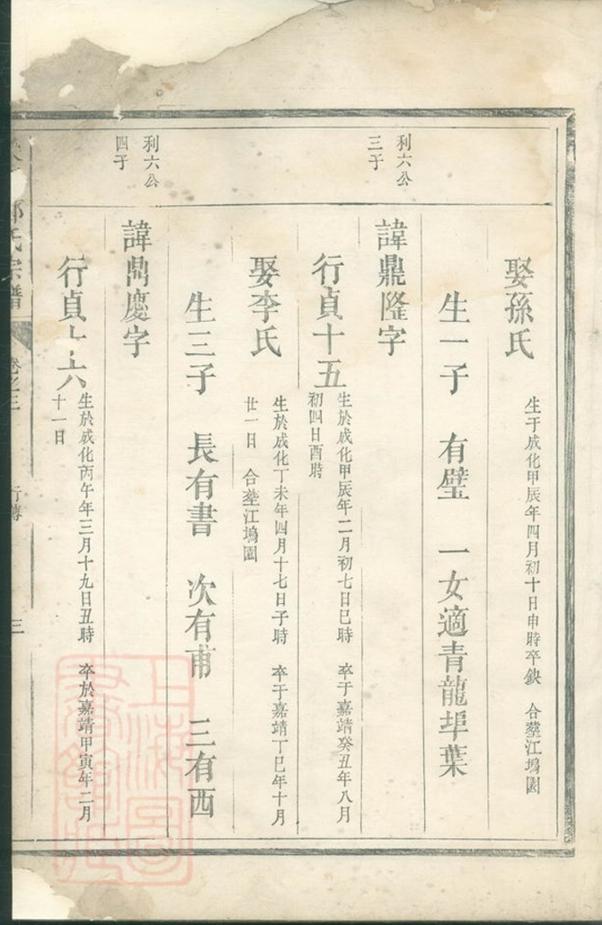 娶孫氏
生于成化甲辰年四月初十日申時卒缺　合塟江塢園
生一子　有璧　一女適青龍埠葉
利六公
三子
諱鼎隆字
行貞十五
生於成化甲辰年二月初七日巳時　卒于嘉靖癸丑年八月
初四日酉時
娶李氏
生於成化丁未年四月十七日子時　卒于嘉靖丁巳年十月
廿一日　合塟江塢園
生三子　長有書　次有甫　三有西
利六公
四子
諱鼎慶字
行貞十六
生於成化丙午年三月十九日丑時　卒於嘉靖甲寅年二月
十一日
氏宗譜
卷之三
行傳
三